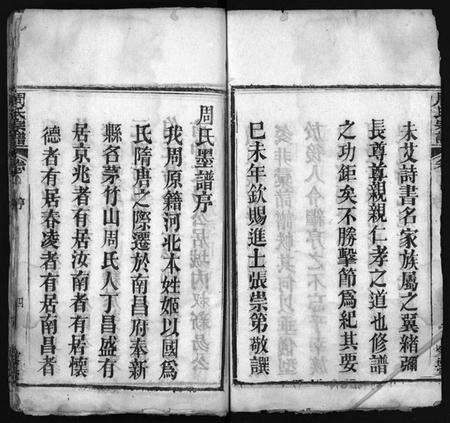 未艾詩書名家族屬之翼緒彌
長尊尊親親仁孝之道也修譜
之功鉅矣不勝擊節爲紀其要
巳未年欽賜進士張崇第敬譔
周氏墨譜序
我周原籍河北本姓姬以國爲
氏隋唐之際遷於南昌府奉新
縣名茅竹山周氏人丁昌盛有
居京兆者有居汝南者有居懷
德者有居春凌者有居南昌者
周氏宗譜
四